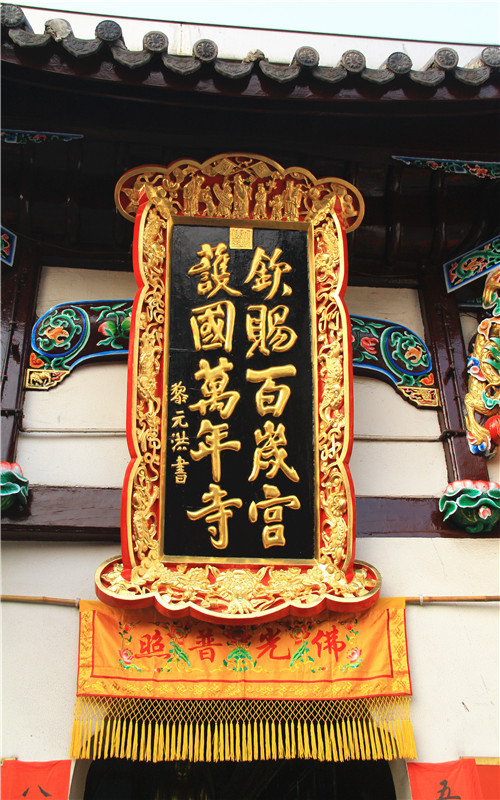 欽賜百歲宮
護國萬年寺
黎元洪書
佛光普照
五
八